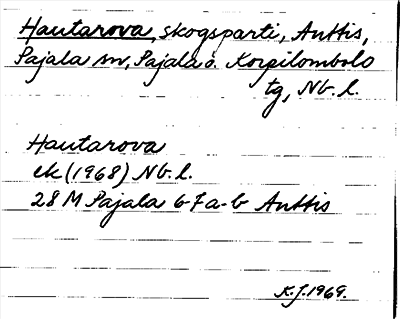 Hautarova, skogsparti, Anttis,
Pajala sn, Pajala o. Korpilombolo
tg, Nb. l.
Hautarova
ek (1968) Nb. l.
28 M Pajala 6-7 a-b Anttis
K.J. 1969.